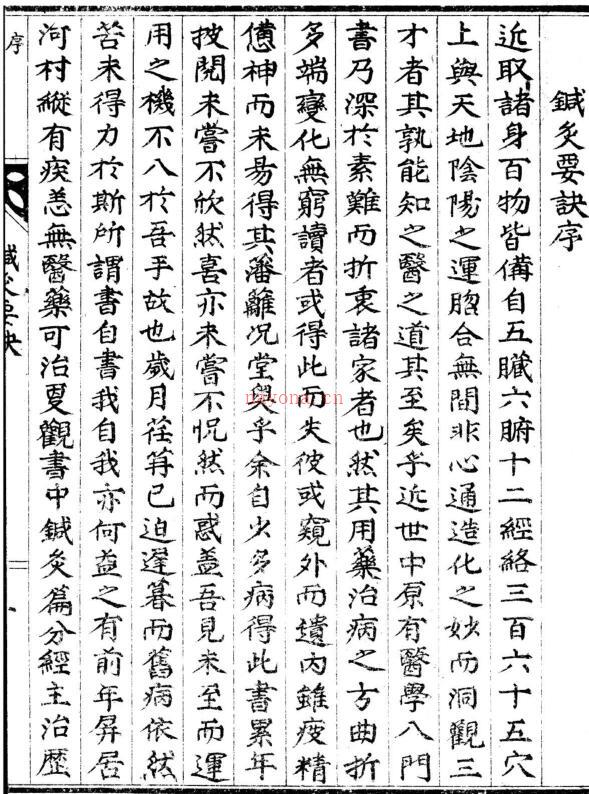 鍼灸要訣序
近取諸身百物皆備自五臟六腑十二經絡三百六十五穴
上與天地陰陽之運脗合無間非心通造化之妙而洞觀三
才者其孰能知之醫之道其至矣乎近世中原有醫學入門
書乃深於素難而折衷諸家者也然其用藥治病之方曲折
多端變化無窮讀者或得此而失彼或窺外而遺內雖疲精
憊神而未易得其藩籬况堂奧乎余自少多病得此書累年
披閱未嘗不欣然喜亦未嘗不怳然而惑盖吾見未至而運
用之機不入於吾手故也歲月荏苒已迫遲暮而舊病依然
苦未得力於斯所謂書自書我自我亦何益之有前年屏居
河村縱有疾恙無醫藥可治夏觀書中鍼灸篇分經主治歷
序
鍼灸要訣
nayona.cn